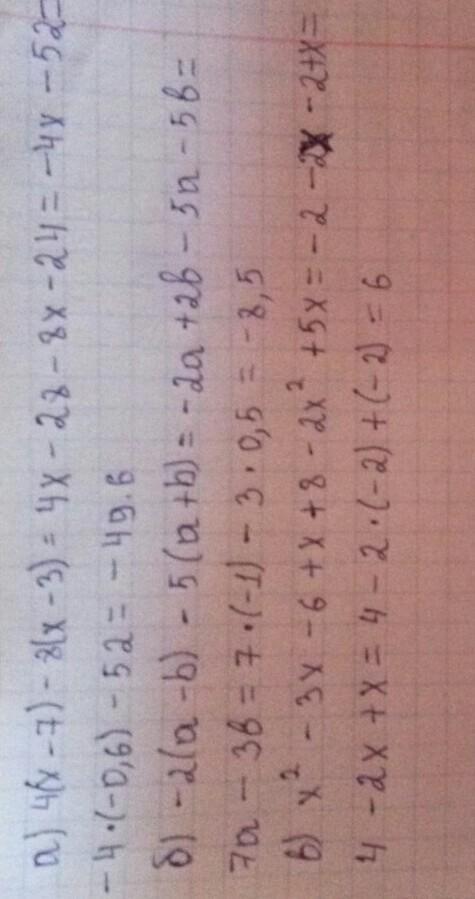 а) 4(x-7) - 8(x-3) = 4x - 28 - 8x - 24 = -4x - 52 =
-4·(-0,6) - 52 = -49.6
б) -2(a-b) - 5(a+b) = -2a + 2b - 5a - 5b =
7a - 3b = 7·(-1) - 3·0,5 = -8,5
в) x² - 3x - 6 + x + 8 - 2x² + 5x = -2 - 2x - 2+x =
4 - 2x + x = 4 - 2·(-2) + (-2) = 6